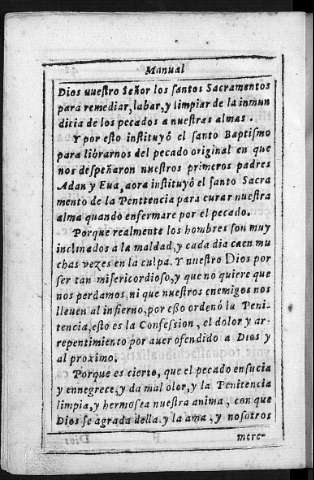 Manual
Dios nuestro Señor los santos Sacramentos
para remediar, labar, y limpiar de la inmun
dicia de los pecados a nuestras almas.
Y por esto instituyó el santo Baptismo
para librarnos del pecado original en que
nos despeñaron nuestros primeros padres
Adan y Eua, aora instituyó el santo Sacra
mento de la Penitencia para curar nuestra
alma quando enfermare por el pecado.
Porque realmente los hombres son muy
inclinados a la maldad, y cada dia caen mu
chas vezes en la culpa. Y nuestro Dios por
ser tan misericordioso, y que no quiere que
nos perdamos, ni que nuestros enemigos nos
lleuen al infierno, por esso ordenó la Peni-
tencia, esto es la Confession, el dolor y ar-
repentimiento por auer ofendido a Dios y
al proximo.
Porque es cierto, que el pecado ensucia
y ennegrece, y da mal olor, y la Penitencia
limpia, y hermosea nuestra anima, con que
Dios se agrada della, y la ama, y nosotros
merc-